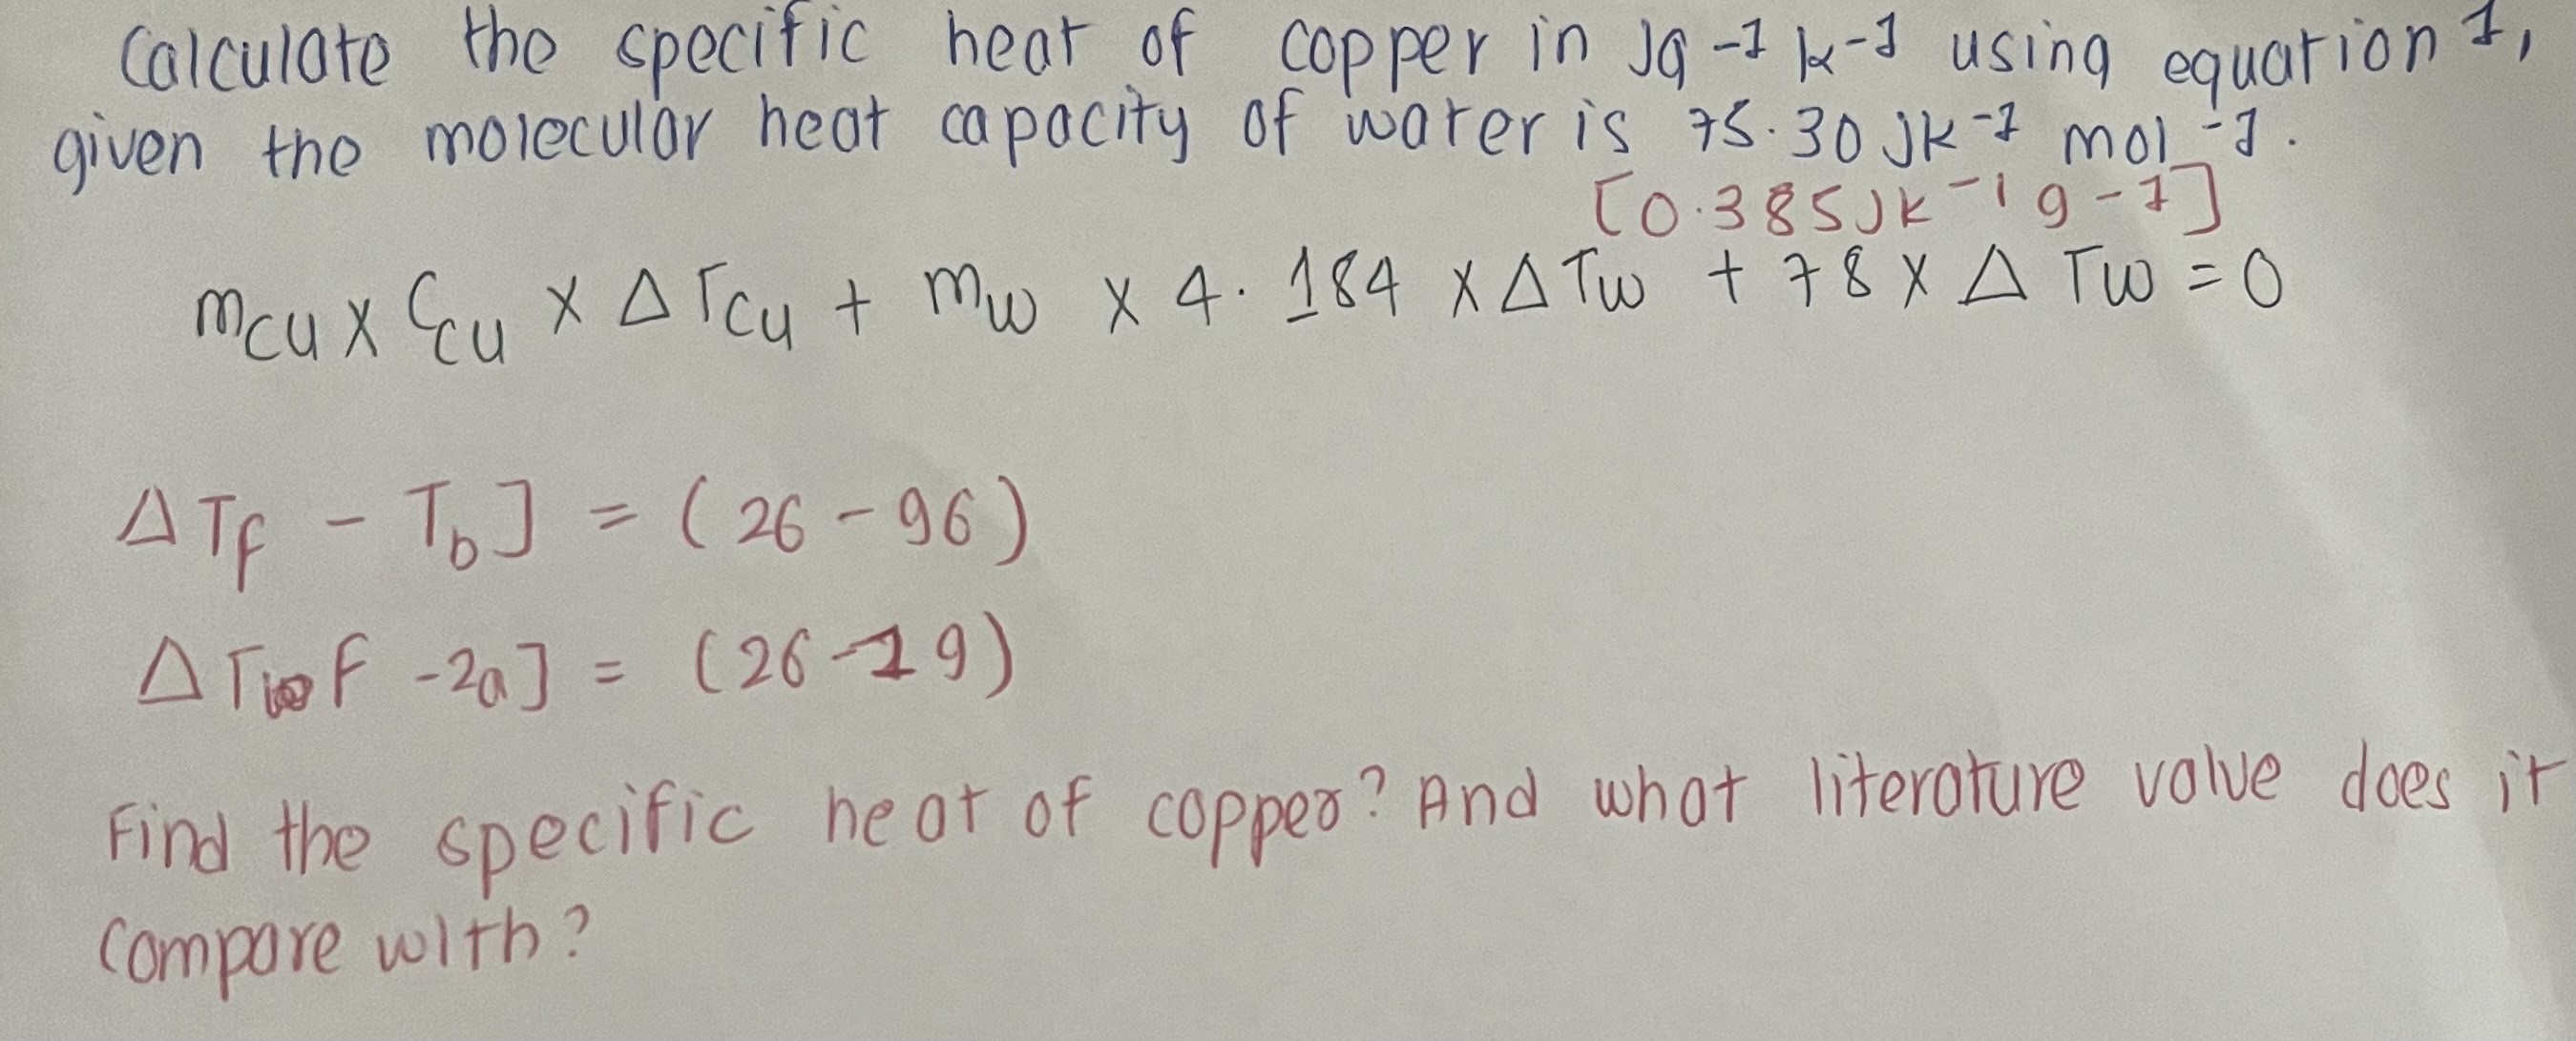 Calculate the specific heat of copper in Jg -1 k-1 using equation 1,
given the molecular heat capacity of water is 75.30 Jk-1 mol -1.
[0.385Jk-1 g-1]
mcu x Ccu x ΔTcu + mw x 4.184 x ΔTw + 78 x ΔTw = 0
ΔTf - Tb] = (26 - 96)
ΔT F -2a] = (26-19)
Find the specific heat of copper? And what literature value does it
compare with?